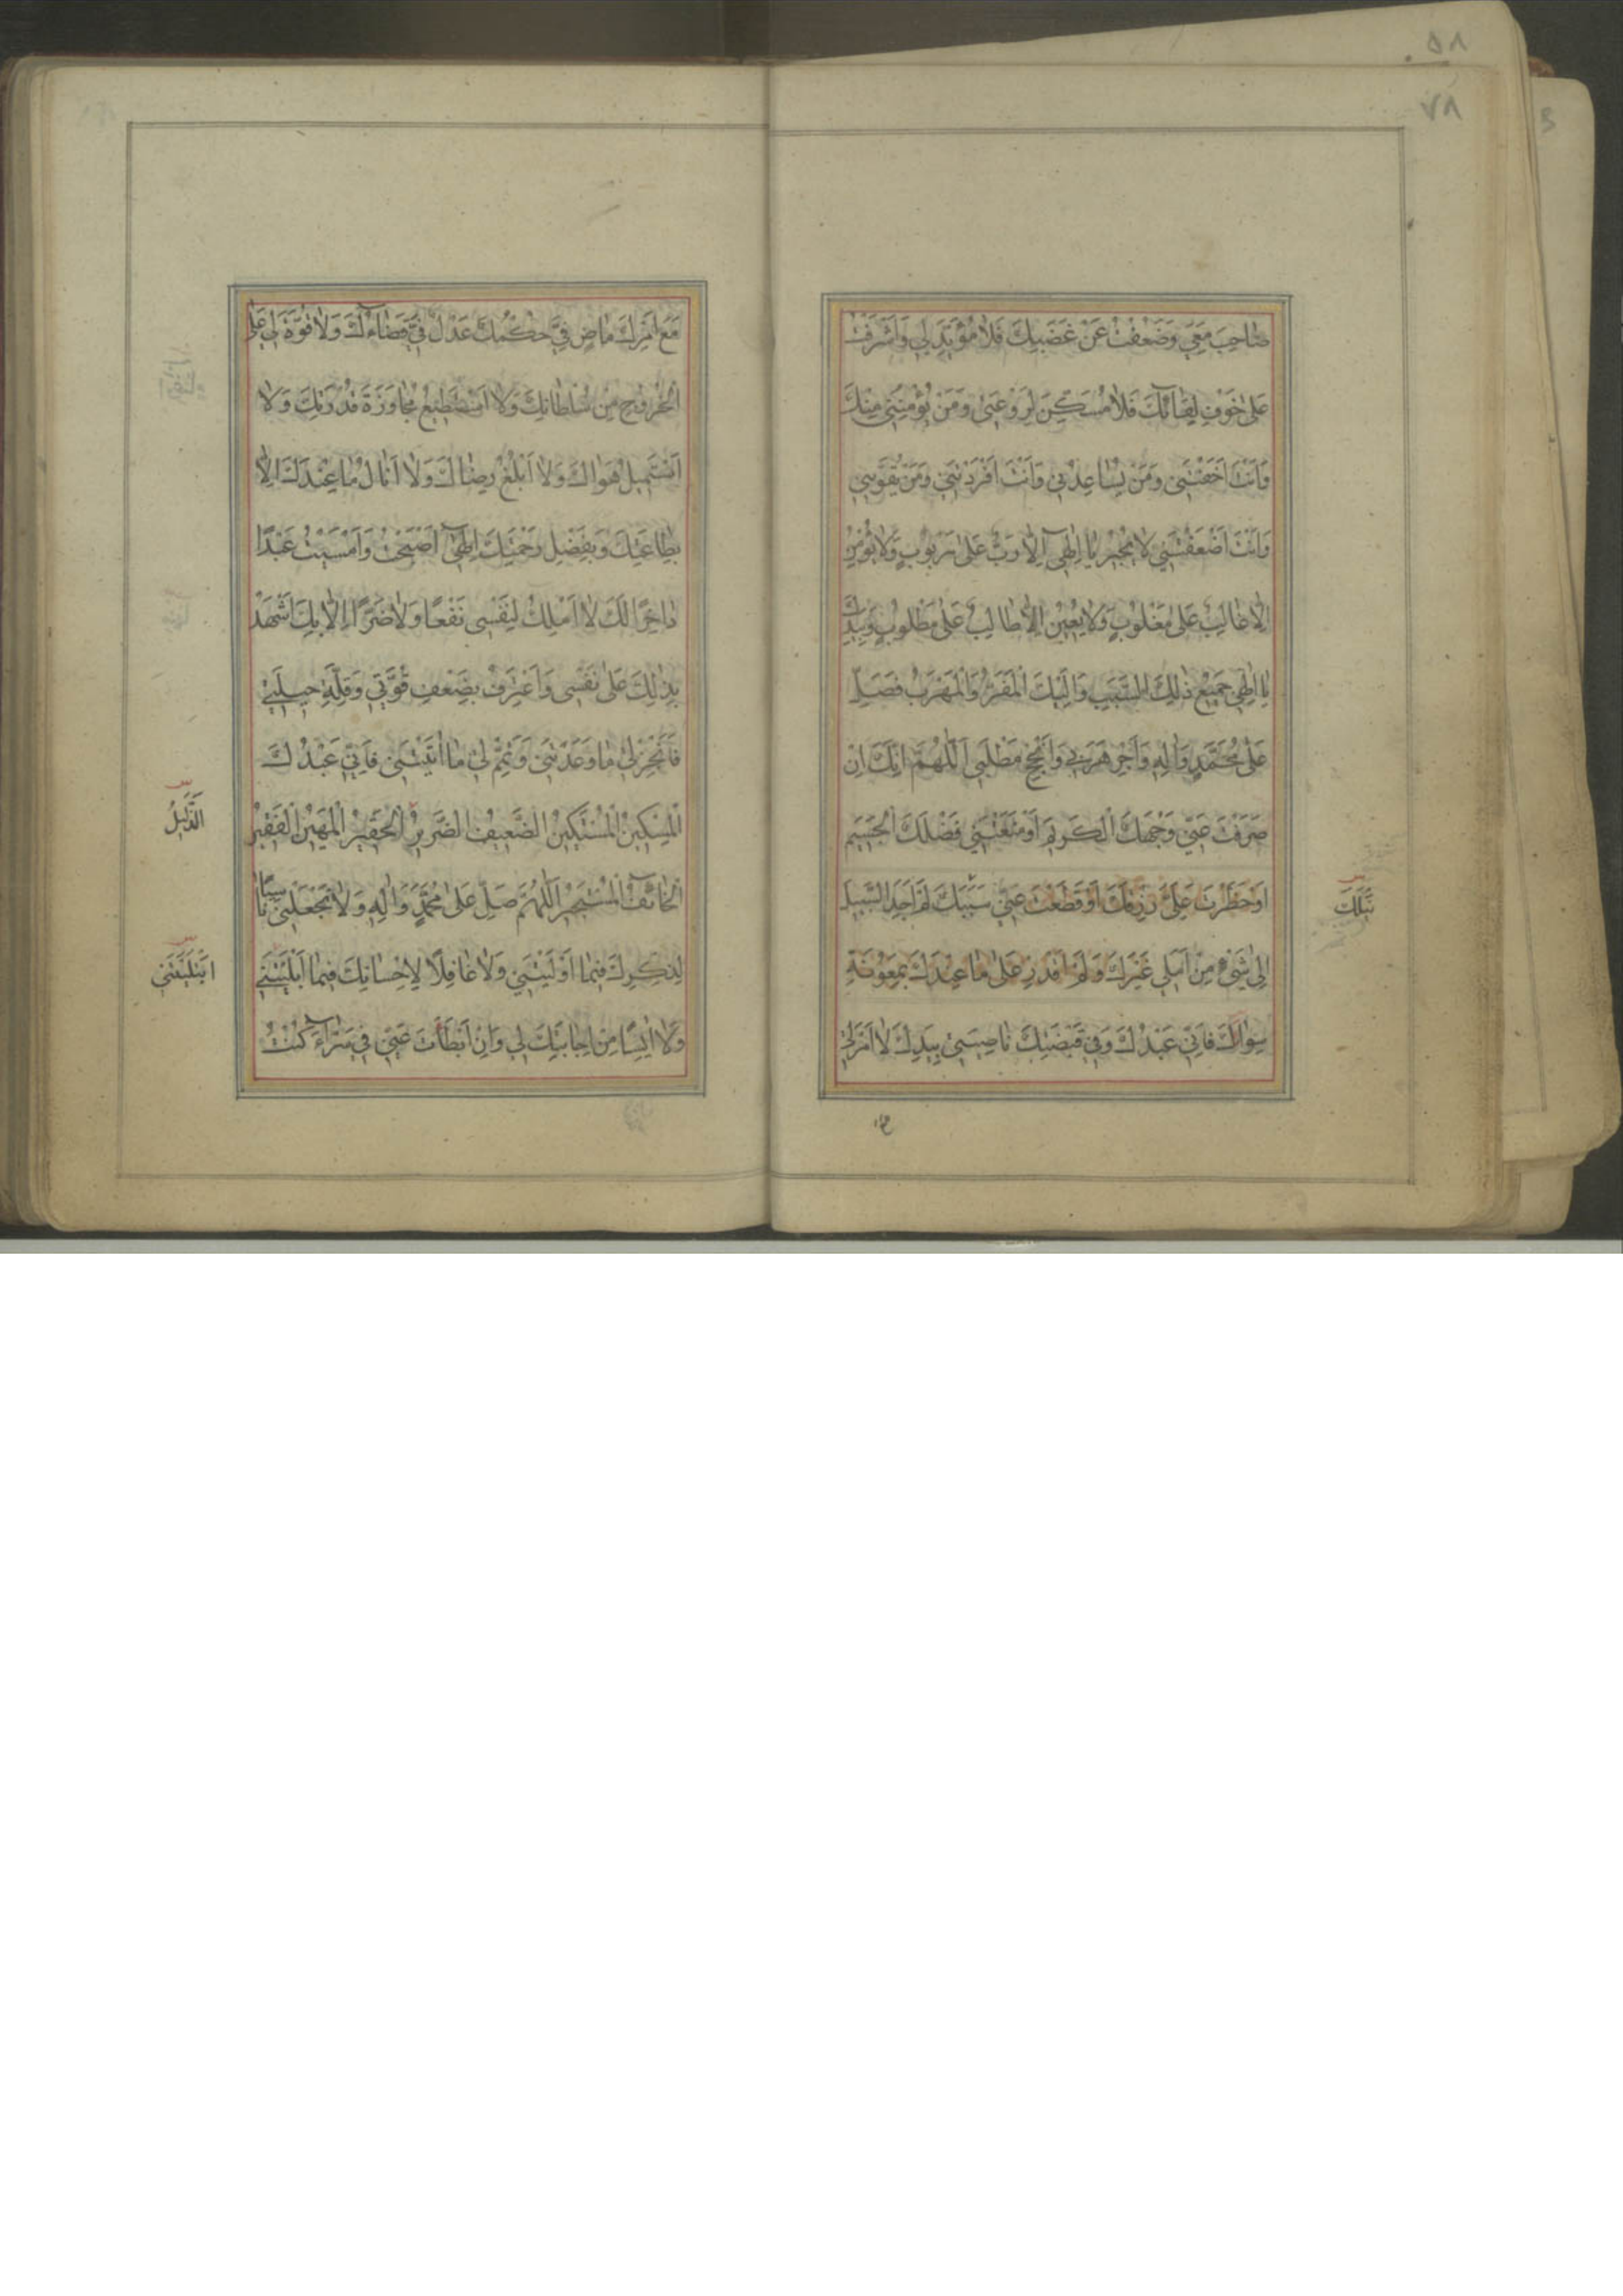 ٥٨
٧٨
صٰاحِبَ مَعِي وَضَعُفْتُ عَنْ غَضَبِكَ فَلٰا مُؤَيِّدَ لِي وَاَشْرَفْتُ
عَلىٰ خَوْفِ لِقٰائِكَ فَلٰا مُسَكِّنَ لِرَوْعَتِي وَمَنْ يُؤْمِنُنِي مِنْكَ
وَاَنْتَ اَخَفْتَنِي وَمَنْ يُسٰاعِدُنِي وَاَنْتَ اَفْرَدْتَنِي وَمَنْ يُقَوِّينِي
وَاَنْتَ اَضْعَفْتَنِي لٰا يُجِيرُ يٰا اِلٰهِي اِلّٰا رَبٌّ عَلىٰ مَرْبُوبٍ وَلٰا يُؤْمِنُ
اِلّٰا غٰالِبٌ عَلىٰ مَغْلُوبٍ وَلٰا يُعِينُ اِلّٰا طٰالِبٌ عَلىٰ مَطْلُوبٍ وَبِيَدِكَ
يٰا اِلٰهِي جَمِيعُ ذٰلِكَ السَّبَبِ وَاِلَيْكَ الْمَفَرُّ وَالْمَهْرَبُ فَصَلِّ
عَلىٰ مُحَمَّدٍ وَاٰلِهِ وَاَجِرْ هَرَبِي وَاَنْجِحْ مَطْلَبِي اَللّٰهُمَّ اِنَّكَ اِنْ
صَرَفْتَ عَنِّي وَجْهَكَ الْكَرِيمَ اَوْ مَنَعْتَنِي فَضْلَكَ الْجَسِيمَ
اَوْ حَظَرْتَ عَلَيَّ رِزْقَكَ اَوْ قَطَعْتَ عَنِّي سَبَبَكَ لَمْ اَجِدِ السَّبِيلَ
اِلىٰ شَيْءٍ مِنْ اَمَلِي غَيْرَكَ وَلَمْ اَقْدِرْ عَلىٰ مٰا عِنْدَكَ بِمَعُونَةِ
سِوٰاكَ فَاِنِّي عَبْدُكَ وَفِي قَبْضَتِكَ نٰاصِيَتِي بِيَدِكَ لٰا اَمْرَ لِي
مَعَ اَمْرِكَ مٰاضٍ فِيَّ حُكْمُكَ عَدْلٌ فِيَّ قَضٰاؤُكَ وَلٰا قُوَّةَ لِي عَلَى
الْخُرُوجِ مِنْ سُلْطٰانِكَ وَلٰا اَسْتَطِيعُ مُجٰاوَزَةَ قُدْرَتِكَ وَلٰا
اَسْتَمِيلُ هَوٰاكَ وَلٰا اَبْلُغُ رِضٰاكَ وَلٰا اَنٰالُ مٰا عِنْدَكَ اِلّٰا
بِطٰاعَتِكَ وَبِفَضْلِ رَحْمَتِكَ اِلٰهِي اَصْبَحْتُ وَاَمْسَيْتُ عَبْدًا
دٰاخِرًا لَكَ لٰا اَمْلِكُ لِنَفْسِي نَفْعًا وَلٰا ضَرًّا اِلّٰا بِكَ اَشْهَدُ
بِذٰلِكَ عَلىٰ نَفْسِي وَاَعْتَرِفُ بِضَعْفِ قُوَّتِي وَقِلَّةِ حِيلَتِي
فَاَنْجِزْ لِي مٰا وَعَدْتَنِي وَتَمِّمْ لِي مٰا اٰتَيْتَنِي فَاِنِّي عَبْدُكَ
الْمِسْكِينُ الْمُسْتَكِينُ الضَّعِيفُ الضَّرِيرُ الْحَقِيرُ الْمَهِينُ الْفَقِيرُ
الذَّلِيلُ
الْخٰائِفُ الْمُسْتَجِيرُ اَللّٰهُمَّ صَلِّ عَلىٰ مُحَمَّدٍ وَاٰلِهِ وَلٰا تَجْعَلْنِي نٰاسِيًا
لِذِكْرِكَ فِيمٰا اَوْلَيْتَنِي وَلٰا غٰافِلًا لِاِحْسٰانِكَ فِيمٰا اَبْلَيْتَنِي
اِبْتَلَيْتَنِي
وَلٰا اٰيِسًا مِنْ اِجٰابَتِكَ لِي وَاِنْ اَبْطَاَتْ عَنِّي فِي سَرّٰاءَ كُنْتُ